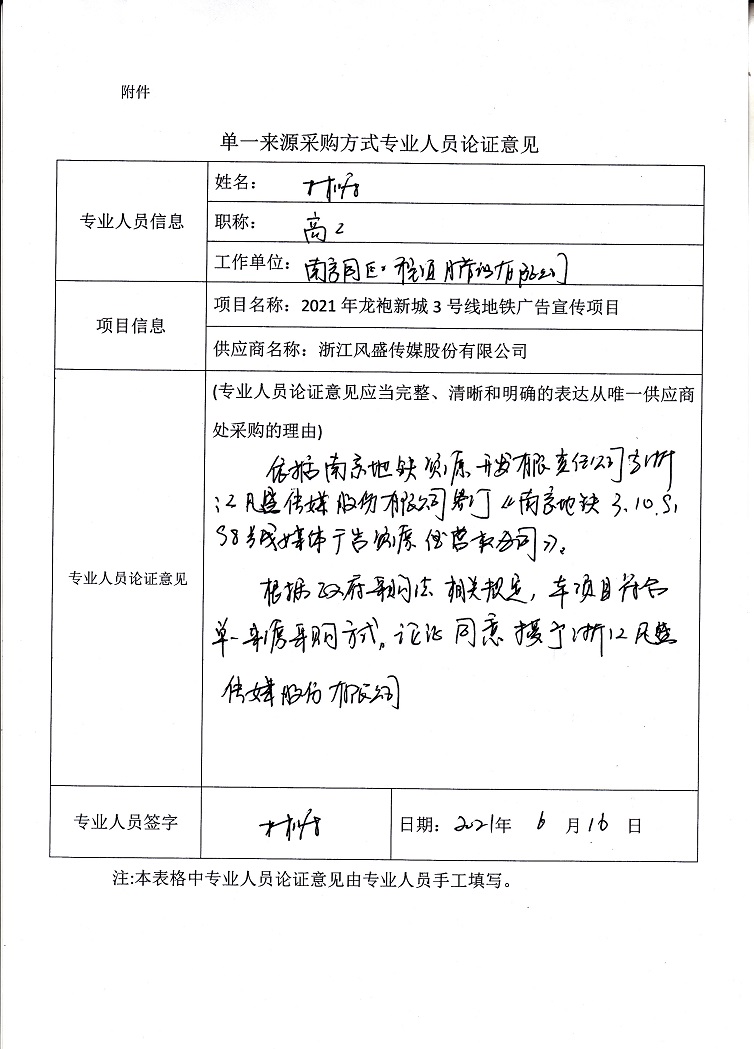 附件
单一来源采购方式专业人员论证意见
专业人员信息
姓名：
职称： 高工
工作单位： 南京同
有限公司
项目信息
项目名称：2021年龙袍新城3号线地铁广告宣传项目
供应商名称：浙江风盛传媒股份有限公司
专业人员论证意见
(专业人员论证意见应当完整、清晰和明确的表达从唯一供应商
处采购的理由)
依据南京地铁资源开发有限责任公司与浙
江风盛传媒股份有限公司签订《南京地铁3.10.S1
S8号线媒体广告资源经营权合同》。
根据政府采购法相关规定，本项目符合
单一来源采购方式。论证同意授予浙江风盛
传媒股份有限公司
专业人员签字
日期：2021年6月16日
注:本表格中专业人员论证意见由专业人员手工填写。